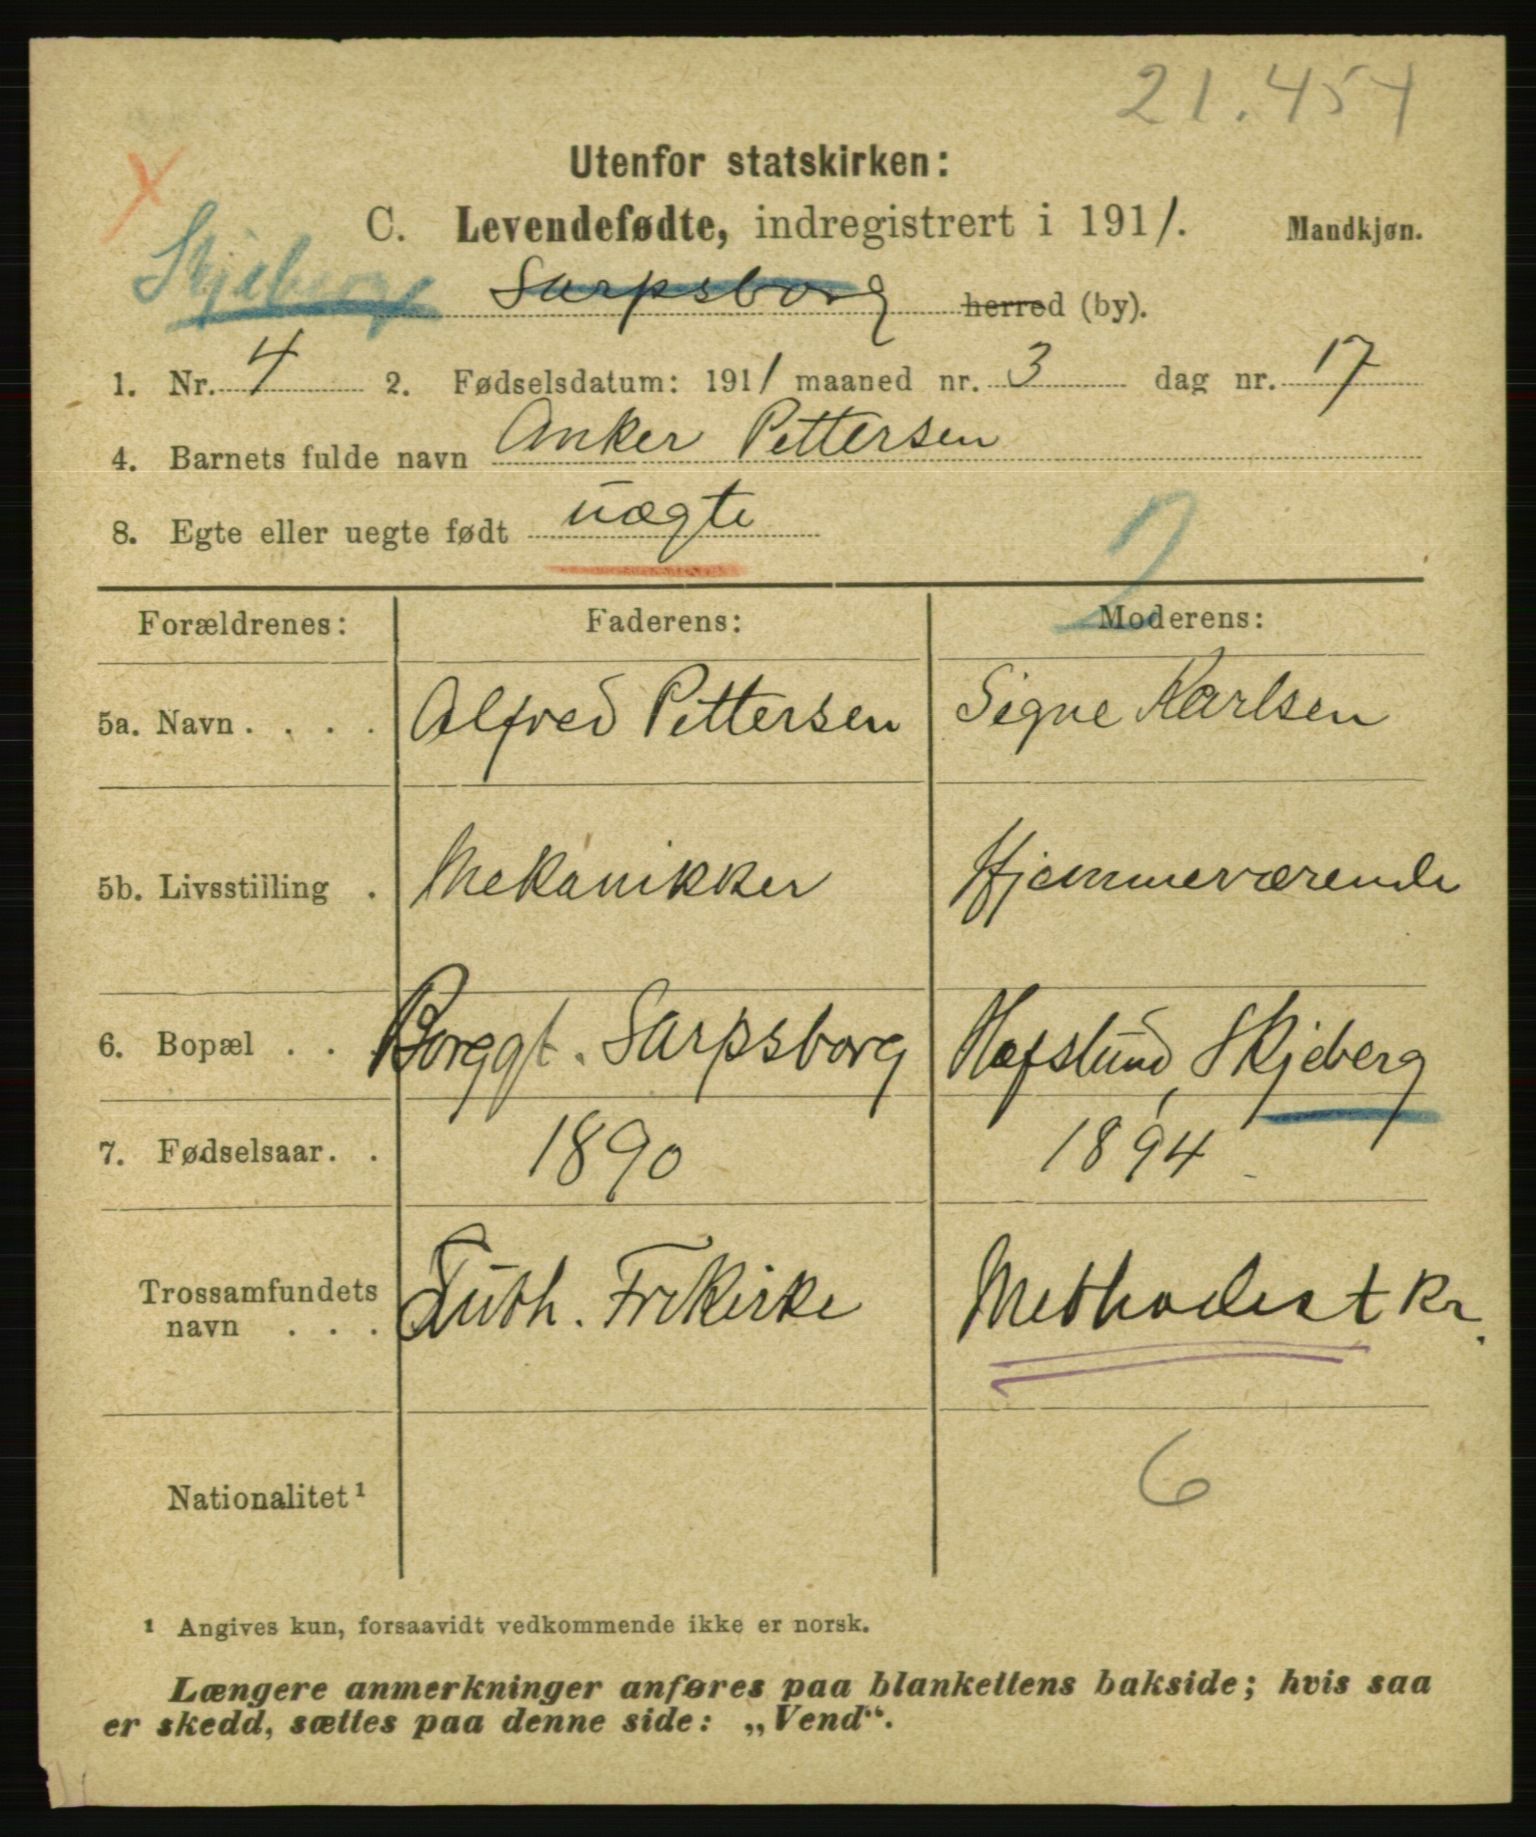 21.454
Utenfor statskirken:
C. Levendefødte, indregistrert i 1911. Mandkjøn.
Skjeberg Sarpsborg herred (by).
1. Nr. 4 2. Fødselsdatum: 1911 maaned nr. 3 dag nr. 17
4. Barnets fulde navn Anker Pettersen
8. Egte eller uegte født uægte
2
Forældrenes: Faderens: Moderens:
5a. Navn . . . . Alfred Pettersen Signe Karlsen
5b. Livsstilling . Mekanikker Hjemmeværende
6. Bopæl . . Borggt. Sarpsborg Hafslund, Skjeberg
7. Fødselsaar. . 1890 1894
Trossamfundets
navn . . . Luth. Frikirke Methodistkr.
Nationalitet¹ 6
¹ Angives kun, forsaavidt vedkommende ikke er norsk.
Længere anmerkninger anføres paa blankettens bakside; hvis saa
er skedd, sættes paa denne side: „Vend“.